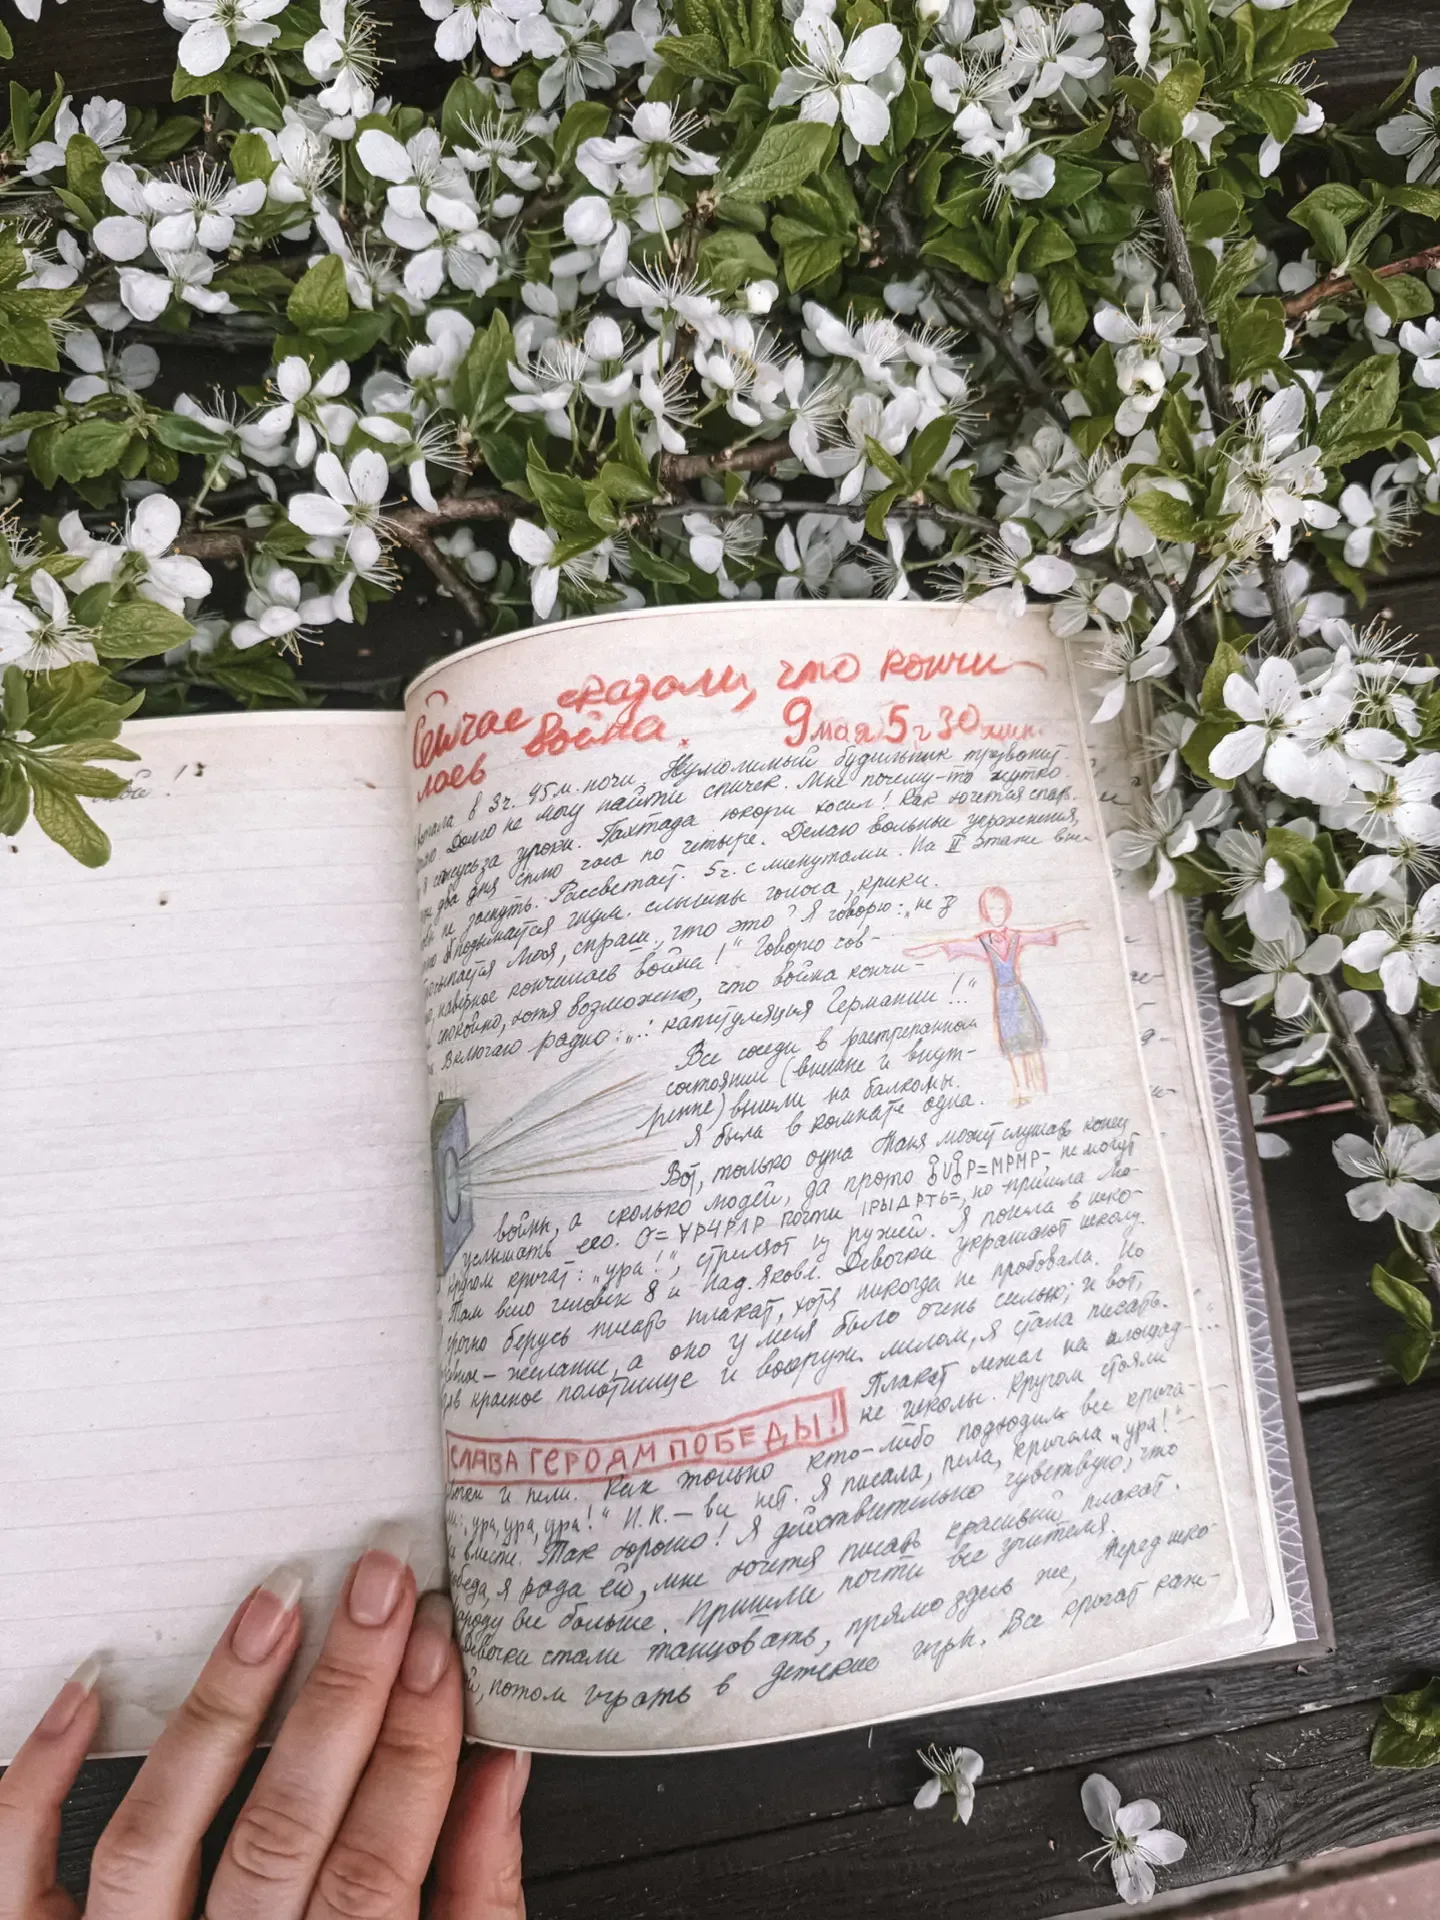 мой!
Сейчас сказали, что кончи-
лась война. 9 мая 5 ч 30 мин.
встала в 3 ч. 45 м. ночи. Неумолимый будильник трезвонит.
Долго не могу найти спичек. Мне почему-то жутко.
я сажусь за уроки. Пахтада юкори хосил! Как хочется спать.
два дня сплю часа по четыре. Делаю вольные упражнения,
не заснуть. Рассветает. 5 ч. с минутами. На II этаже вне-
подымается шум. слышны голоса, крики.
просыпается Люся, спраш., что это? Я говорю: „не з
наверное кончилась война!" Говорю
спокойно, хотя возможно, что война кончи-
Включаю радио: „...: капитуляция Германии!.."
Все соседи в растрепанном
состоянии (внешне и внут-
ренне) вышли на балконы.
Я была в комнате одна.
Вот, только одна Таня может слушать конец
войны, а сколько людей, да просто не могут
услышать его. почти но пришла Лю-
Кругом кричат: „ура!", стреляют из ружей. Я пошла в шко-
Там всего человек 8 и Над. Яковл. Девочки украшают школу.
срочно берусь писать плакат, хотя никогда не пробовала. Но
главное – желание, а оно у меня было очень сильно; и вот,
взяв красное полотнище и вооруж. мелом, я стала писать.
Плакат лежал на площад-
СЛАВА ГЕРОЯМ ПОБЕДЫ!
ке школы. Кругом стояли
и пели. Как только кто-либо подходил все крича-
ли: „ура, ура, ура!" Н.К. – вы нет. Я писала, пела, кричала „ура!"
вместе. Так хорошо! Я действительно чувствую, что
победа, я рада ей, мне хочется писать красивый плакат.
Народу все больше. Пришли почти все учителя.
Девочки стали танцовать, прямо здесь же, перед шко-
лой, потом играть в детские игры. Все кричат каж-